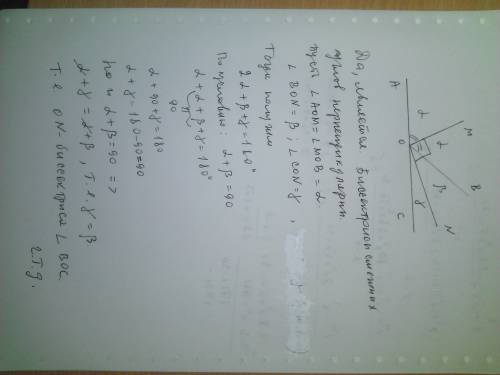 Да, является. Биссектрисы смежных
углов перпендикулярны.
Пусть ∠AOM = ∠MOB = α.
∠BON = β, ∠CON = γ,
Тогда получим
2α + β + γ = 180°
По условию: α + β = 90
α + α + β + γ = 180°
90
α + 90 + γ = 180
α + γ = 180 - 90 = 90
но и α + β = 90 =>
α + γ = α + β, т.е. γ = β.
Т.е. ON - биссектриса ∠BOC
ч.т.д.
A
α
M
α
O
B
β
N
γ
C